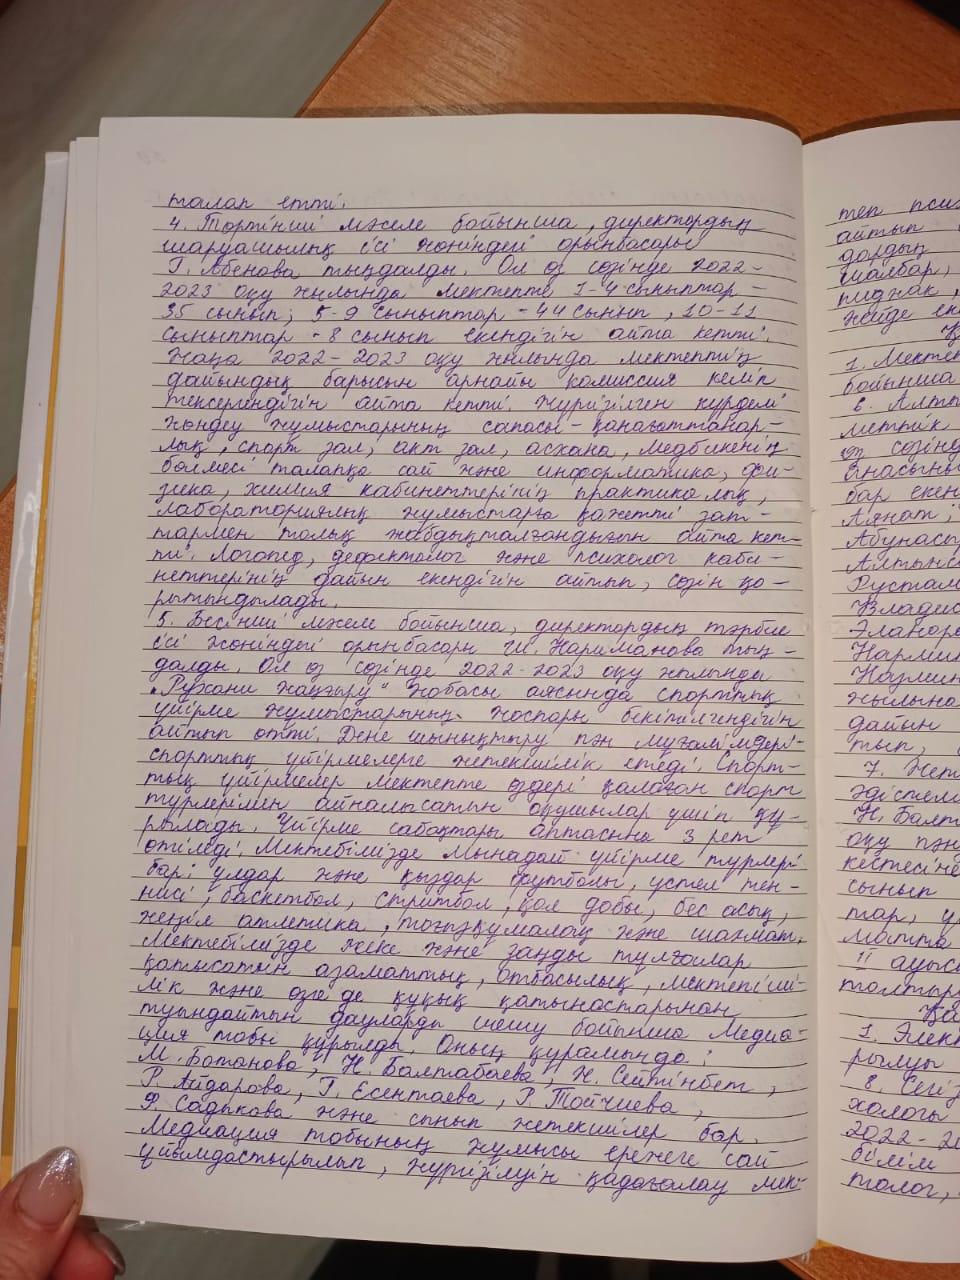 талап етті.
4. Төртінші мәселе бойынша, директордың
шаруашылық ісі жөніндегі орынбасары
Г. Абенова тыңдалды. Ол өз сөзінде 2022-
2023 оқу жылында мектепте 1-4 сыныптар -
35 сынып; 5-9 сыныптар - 44 сынып, 10-11
сыныптар - 8 сынып екендігін айта кетті.
Жаңа 2022-2023 оқу жылында мектептің
дайындық барысын арнайы комиссия келіп
тексергендігін айта кетті. Жүргізілген күрделі
жөндеу жұмыстарының сапасы - қанағаттанар-
лық, спорт зал, акт зал, асхана, медбикенің
бөлмесі талапқа сай және информатика, фи-
зика, химия кабинеттерінің практикалық,
лабораториялық жұмыстарға қажетті зат-
тармен толық жабдықталғандығын айта кет-
ті. Логопед, дефектолог және психолог каби-
неттерінің дайын екендігін айтып, сөзін қо-
рытындылады.
5. Бесінші мәселе бойынша, директордың тәрбие
ісі жөніндегі орынбасары Ш. Нариманова тың-
далды. Ол өз сөзінде 2022-2023 оқу жылында
„Рухани жаңғыру" жобасы аясында спорттық
үйірме жұмыстарының жоспары бекітілгендігін
айтып өтті. Дене шынықтыру пән мұғалімдері-
спорттық үйірмелерге жетекшілік етеді. Спорт-
тық үйірмелер мектепте өздері қалаған спорт
түрлерімен айналысатын оқушылар үшін құ-
рылады. Үйірме сабақтары аптасына 3 рет
өтіледі. Мектебімізде мынадай үйірме түрлері
бар: ұлдар және қыздар футболы, үстел тен-
нисі, баскетбол, стритбол, қол добы, бес асық,
жеңіл атлетика, тоғызқұмалақ және шахмат.
Мектебімізде жеке және заңды тұлғалар
қатысатын азаматтық, отбасылық, мектепіші-
лік және өзге де құқық қатынастарынан
туындайтын дауларды шешу бойынша Медиа-
ция тобы құрылды. Оның құрамында:
М. Ботанова, Н. Балтабаева, Н. Сейтінбет,
Р. Айдарова, Г. Есентаева, Р. Тойчиева,
Ф. Садыкова және сынып жетекшілер бар.
Медиация тобының жұмысы ережеге сай
ұйымдастырылып, жүргізілуін қадағалау мек-
теп
айтып
дардың
шалбар,
пиджак,
жейде
1. Мектеп
бойынша
6.
сөзінд
бар екен
Аянат,
Абунасы
Рустам
Владис
Элано
Нармин
Назлин
жылына
дайын
тып,
7.
әдістем
Н. Балт
оқу пән
кестесіне
сынып
тар,
матта
11 ауыс
толтыр
1. Элект
рылуы
8. Сегіз
хологы
2022-20
білім
толог,